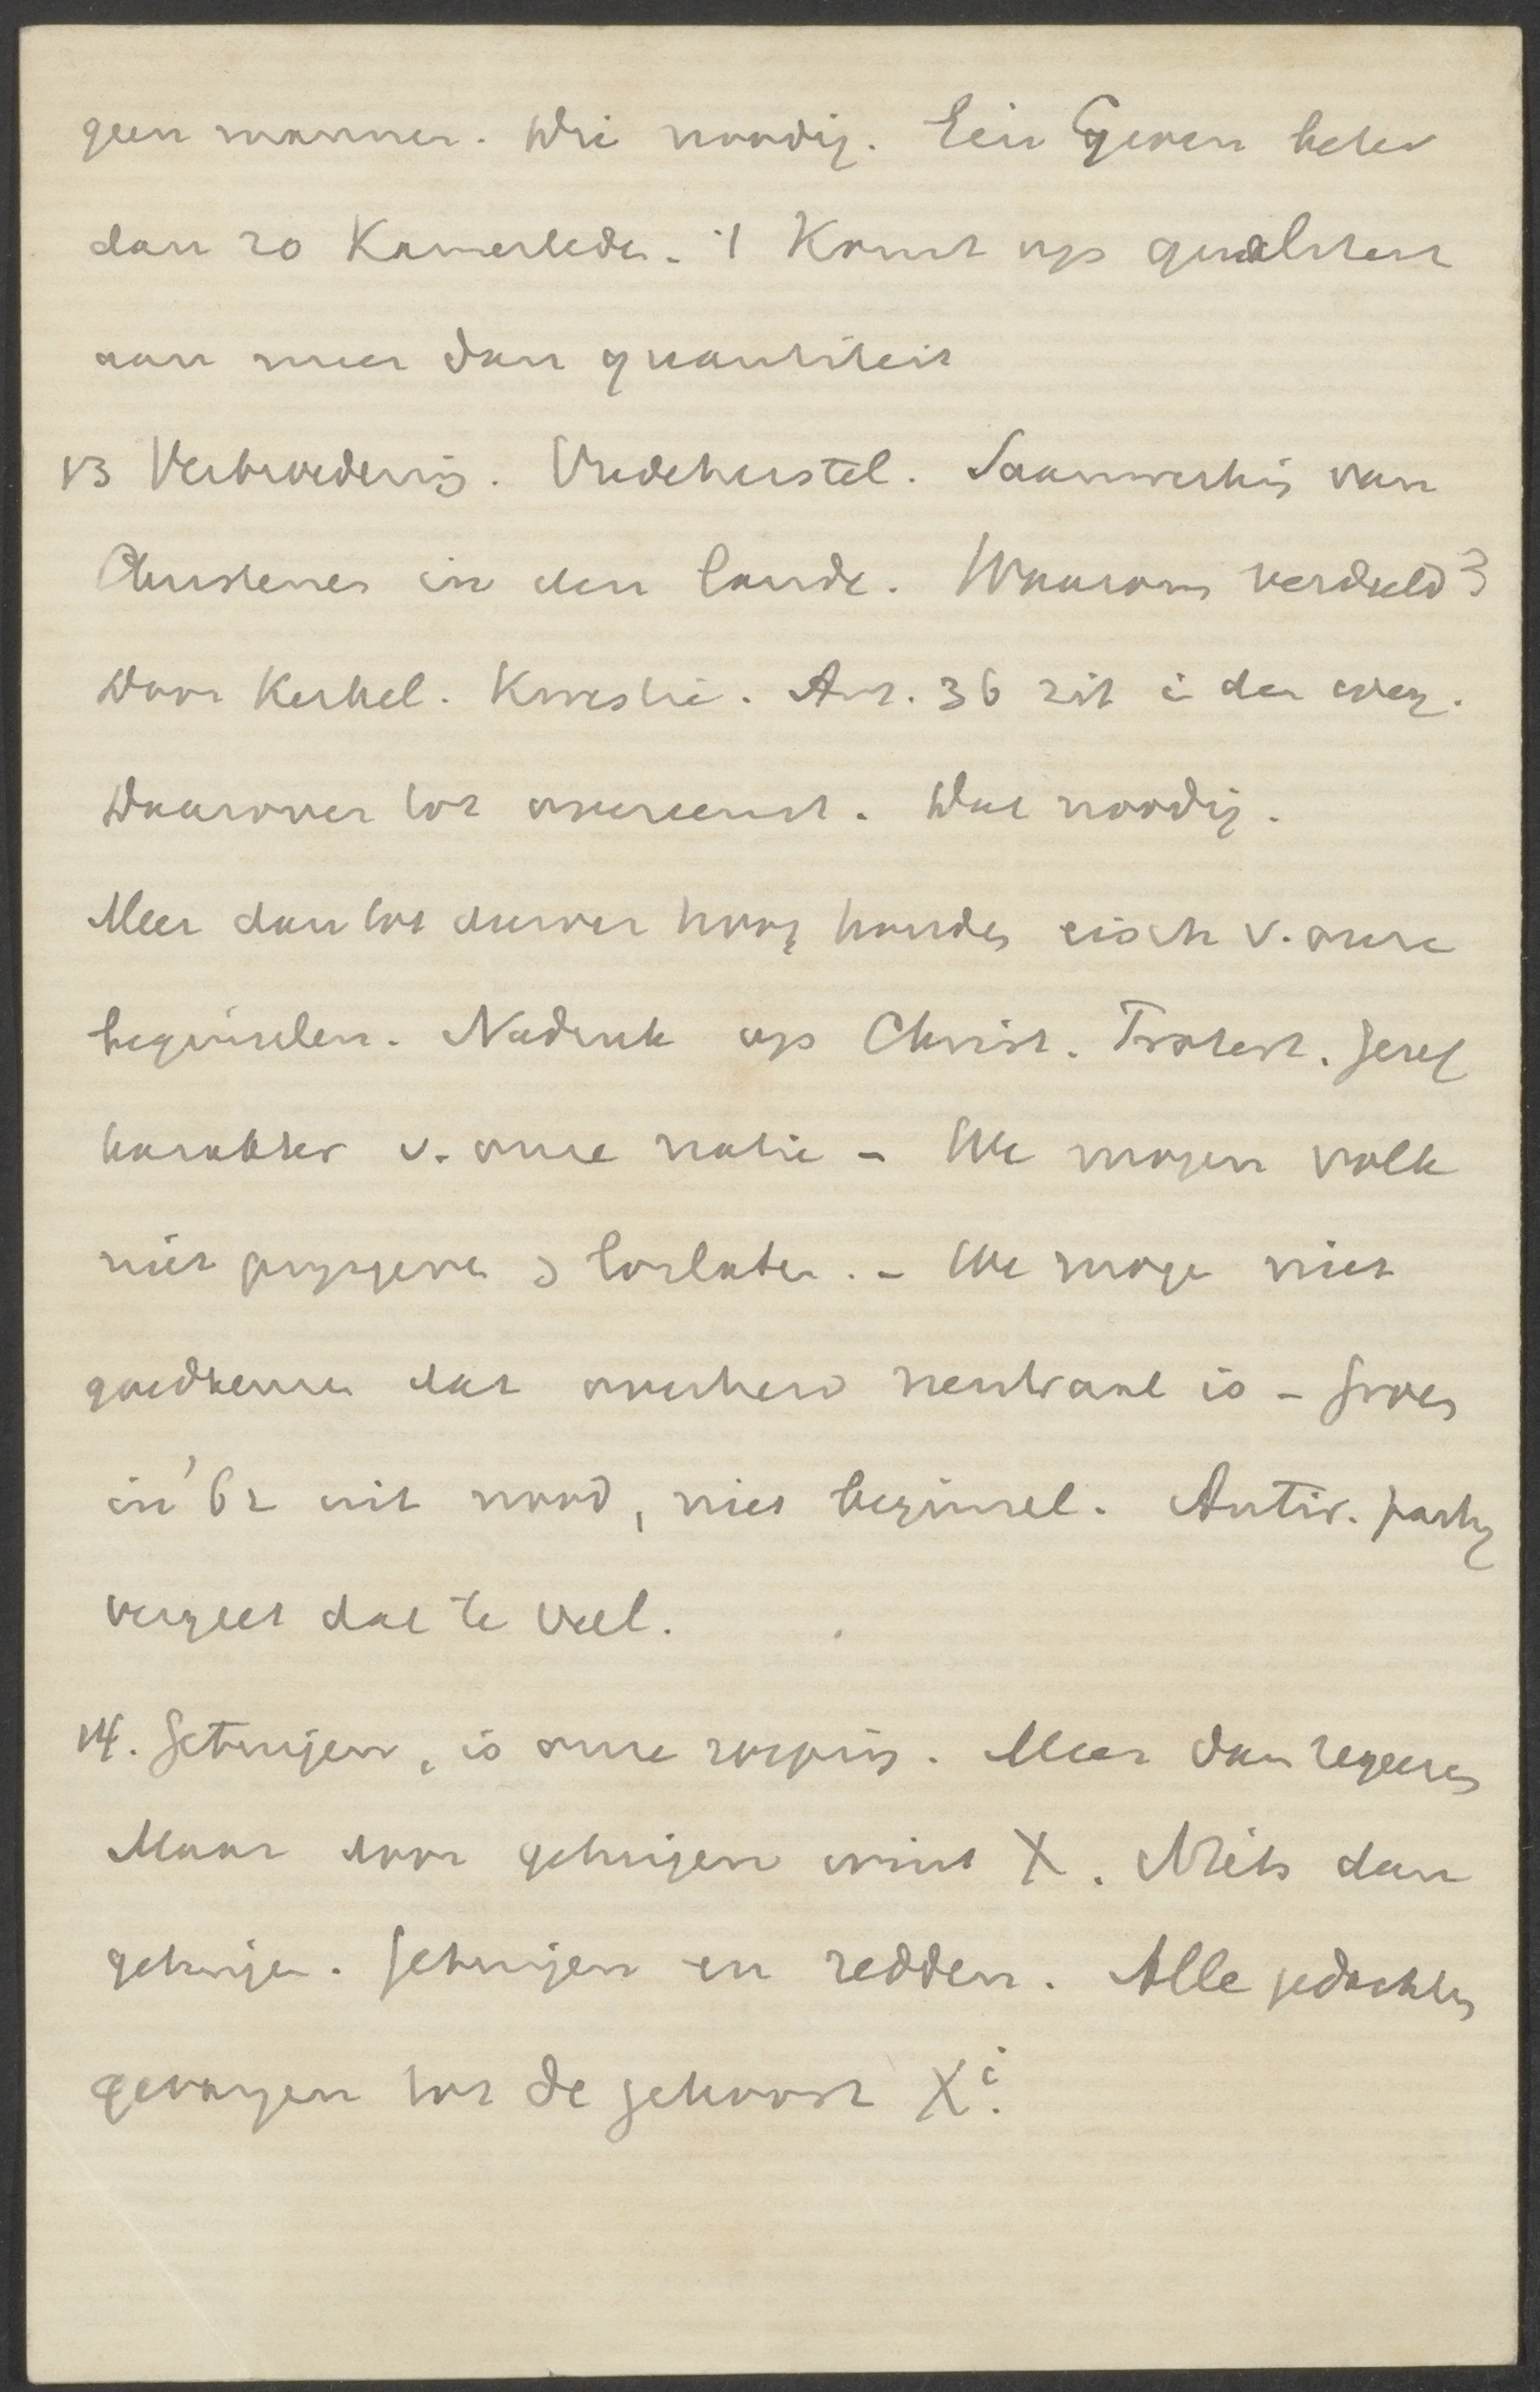 geen mannen. Die noodig. Een Groen beter
dan 20 Kamerleden. 't Komt op qualiteit
aan meer dan quantiteit
13 Verbroedering. Vredeherstel. Saamwerking van
Christenen in den lande. Waarom verdeeld?
Door Kerkel. Kwestie. Art. 36 zit in den weg.
Daarover tot overeenst. Dat noodig.
Meer dan tot dusver hoog houden eisch v. onze
beginselen. Nadruk op Christ. Protest. Geref
karakter v. onze natie - We mogen volk
niet prijsgeven & loslaten. - We mogen niet
goedkeuren dat overheid neutraal is - Groen
in '62 uit nood, niet beginsel. Antir. partij
vergeet dat te veel.
14. Getuigen, is onze roeping. Meer dan regeeren
Maar door getuigen wint X. Niets dan
getuigen. Getuigen en redden. Alle gedachten
gevangen tot de gehoorz Xi.